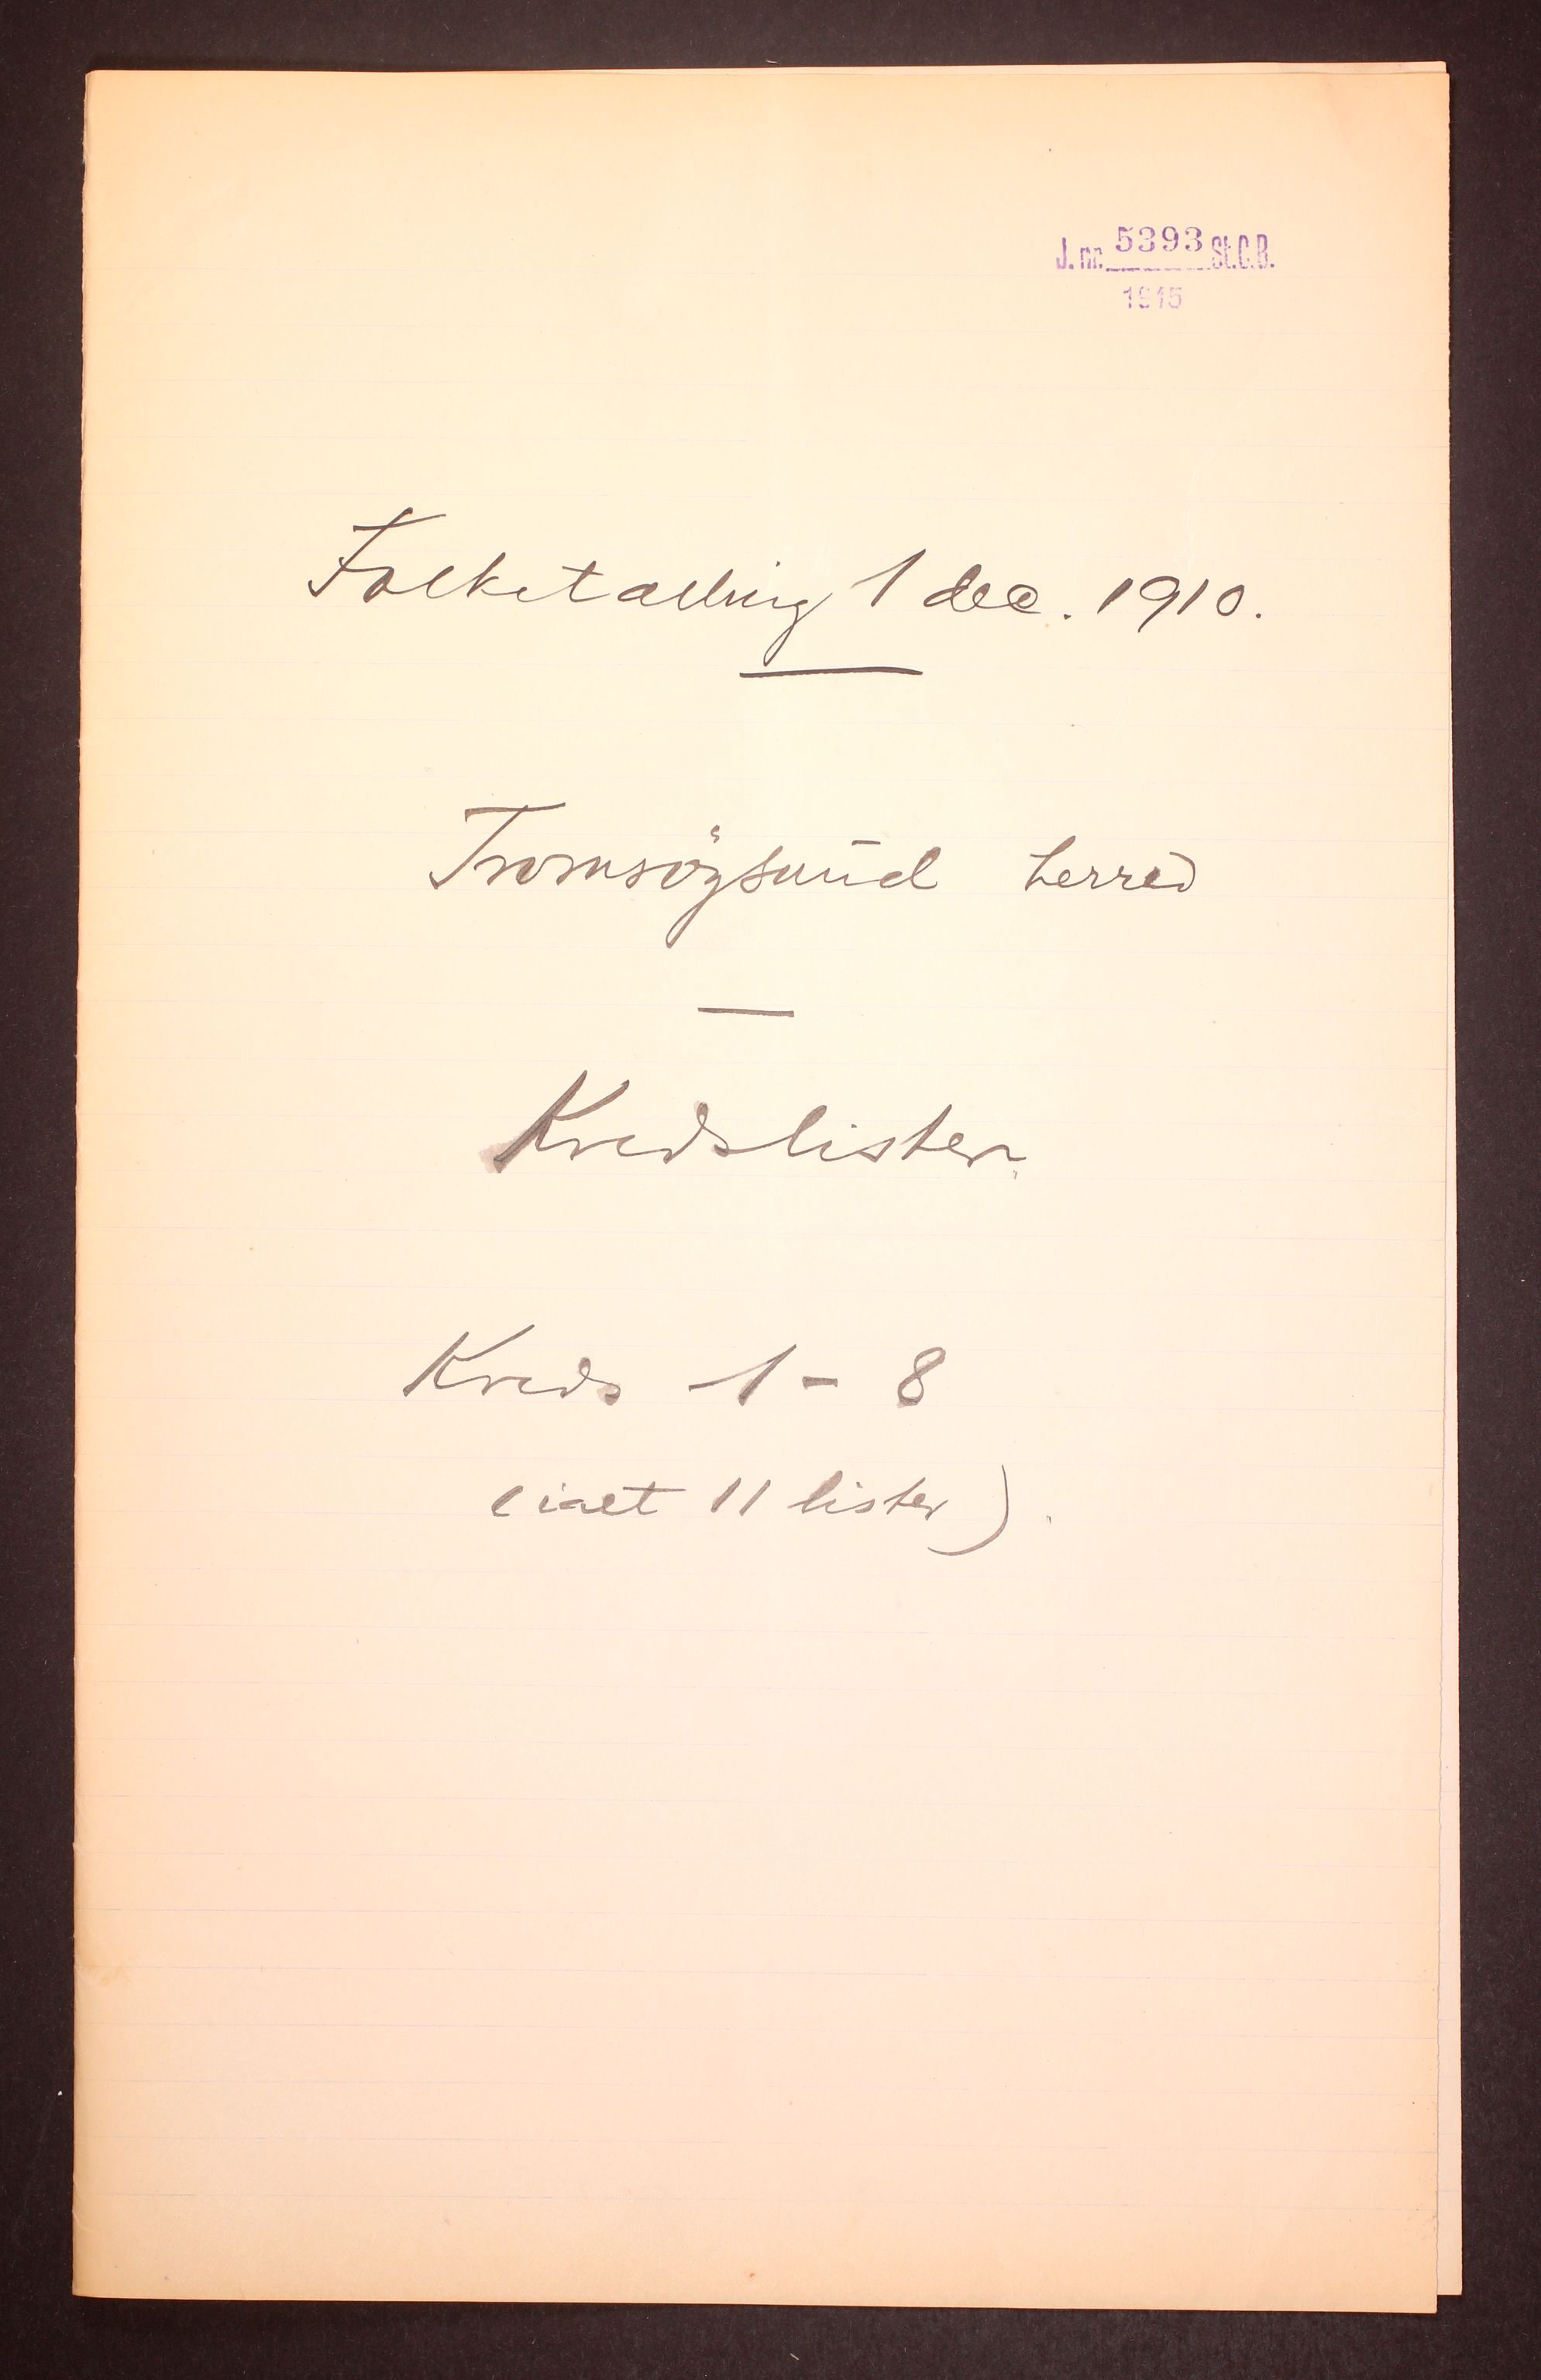 J. nr. 5393 St.C.B.
1915
Folketælling 1 dec. 1910.
Tromsöysund herred
Kredslister.
Kreds 1 - 8
(ialt 11 lister).